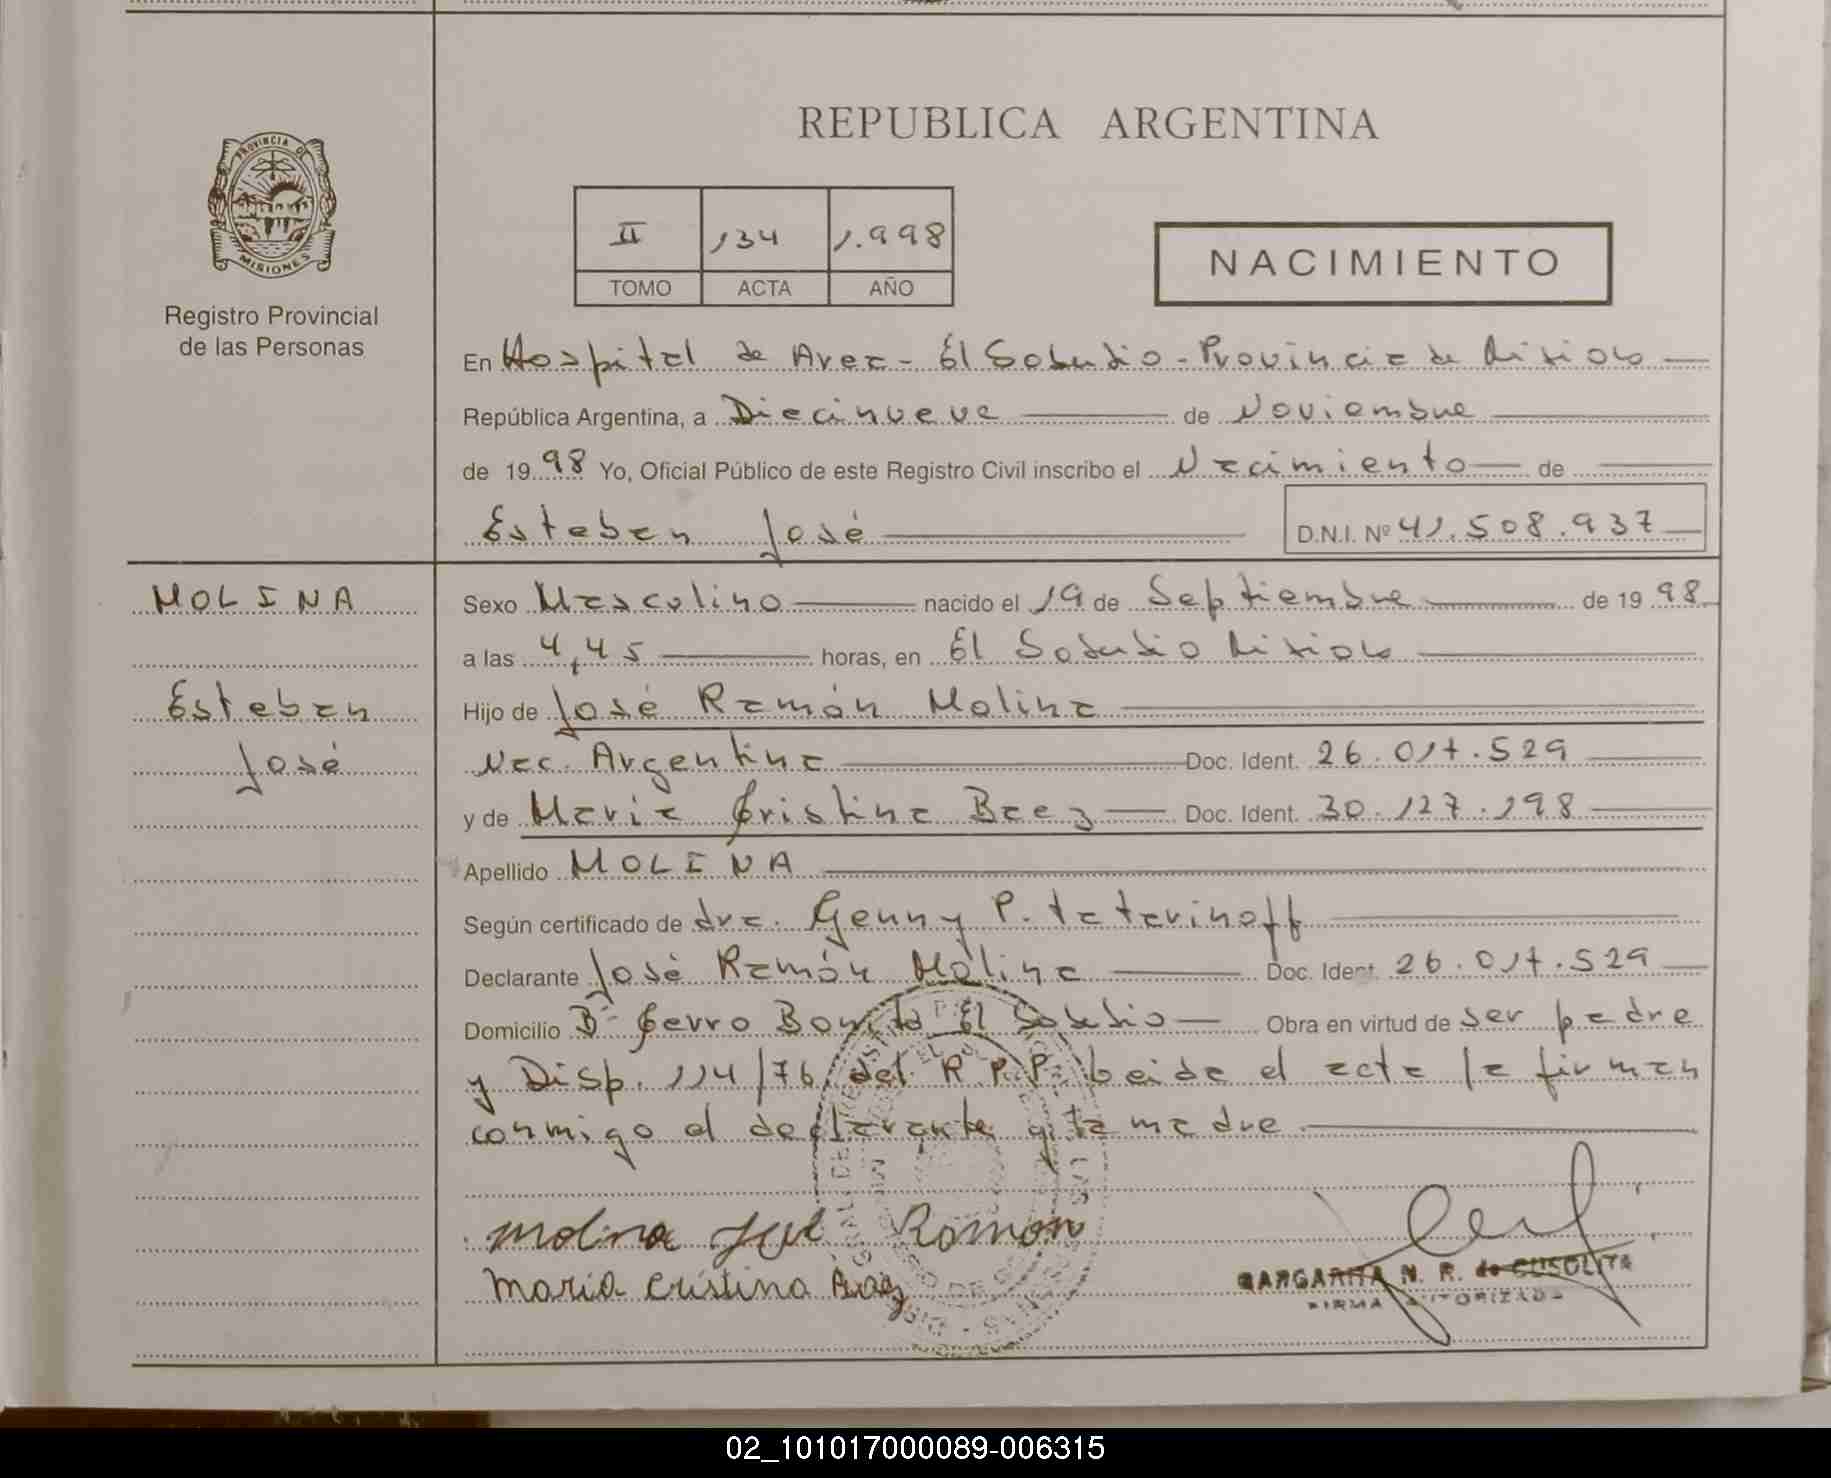 REPUBLICA ARGENTINA
PROVINCIA DE
MISIONES
Registro Provincial
de las Personas
II 134 1.998
TOMO ACTA AÑO
NACIMIENTO
En Hospital de Area - El Soberbio - Provincia de Misiones
República Argentina, a Diecinueve de Noviembre
de 19 98 Yo, Oficial Público de este Registro Civil inscribo el Nacimiento de
Esteban José D.N.I. Nº 41.508.937
MOLINA
Esteban
José
Sexo Masculino nacido el 19 de Septiembre de 19 98
a las 4,45 horas, en El Soberbio Misiones
Hijo de José Ramón Molina
Nac. Argentina Doc. Ident. 26.017.529
y de Maria Cristina Baez Doc. Ident. 30.127.198
Apellido MOLINA
Según certificado de dra. Genny P. tatarinoff
Declarante José Ramón Molina Doc. Ident. 26.017.529
Domicilio Bº Cerro Bonito El Soberbio Obra en virtud de ser padre
y Disp. 114/76 del R.P.P. Leida el acta la firman
conmigo el declarante y la madre
Molina José Ramon
Maria Cristina Baez
MARGARITA N. R. de CUSOLITA
FIRMA AUTORIZADA
02_101017000089-006315